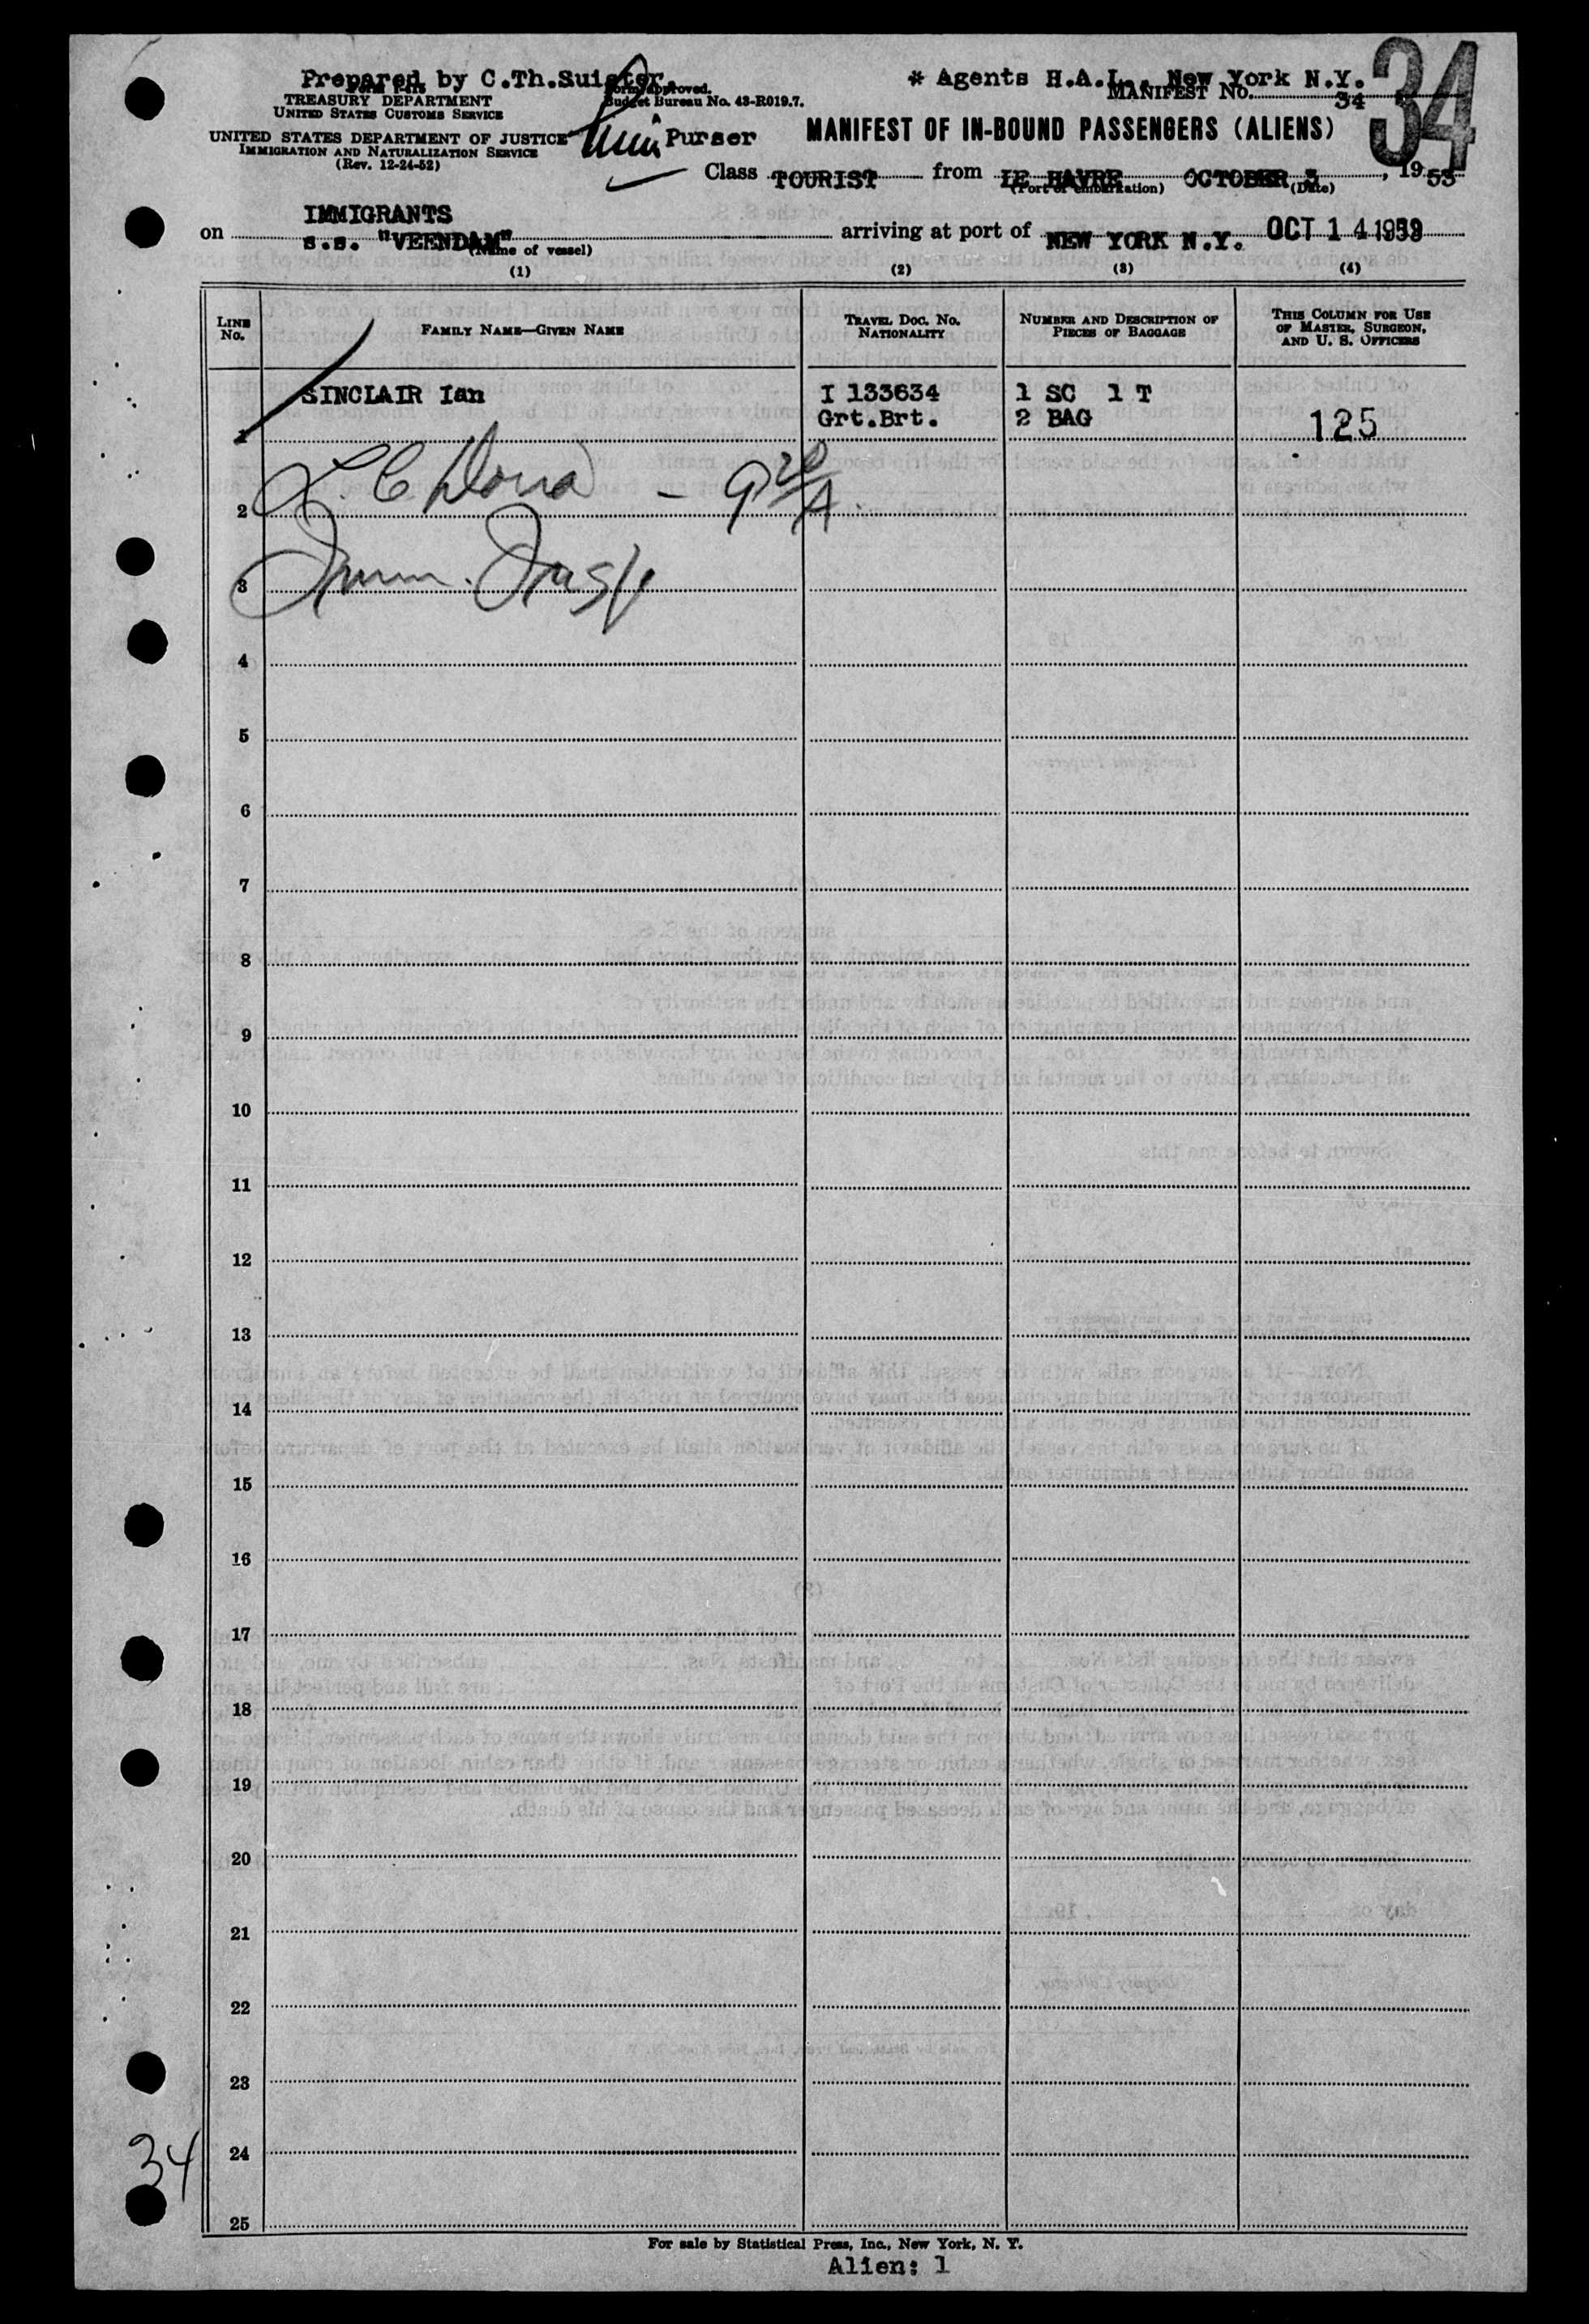 Prepared by C.Th.Suister. * Agents H.A.L. New York N.Y. 34
Form approved. MANIFEST No. 34
TREASURY DEPARTMENT Budget Bureau No. 43-R019.7.
UNITED STATES CUSTOMS SERVICE
UNITED STATES DEPARTMENT OF JUSTICE Purser MANIFEST OF IN-BOUND PASSENGERS (ALIENS)
IMMIGRATION AND NATURALIZATION SERVICE
(Rev. 12-24-52)
Class TOURIST from LE HAVRE OCTOBER 3, 1953
(Port of embarkation) (Date)
IMMIGRANTS
on s.s. "VEENDAM" arriving at port of NEW YORK N.Y. OCT 14 1953
(Name of vessel)
(1) (2) (3) (4)
LINE No. FAMILY NAME—GIVEN NAME TRAVEL DOC. NO. NATIONALITY NUMBER AND DESCRIPTION OF PIECES OF BAGGAGE THIS COLUMN FOR USE OF MASTER, SURGEON, AND U. S. OFFICERS
SINCLAIR Ian I 133634 1 SC 1 T
1 Grt.Brt. 2 BAG 125
2
3 Imm. Insp
4
5
6
7
8
9
10
11
12
13
14
15
16
17
18
19
20
21
22
23
24
34
25
For sale by Statistical Press, Inc., New York, N. Y.
Alien: 1